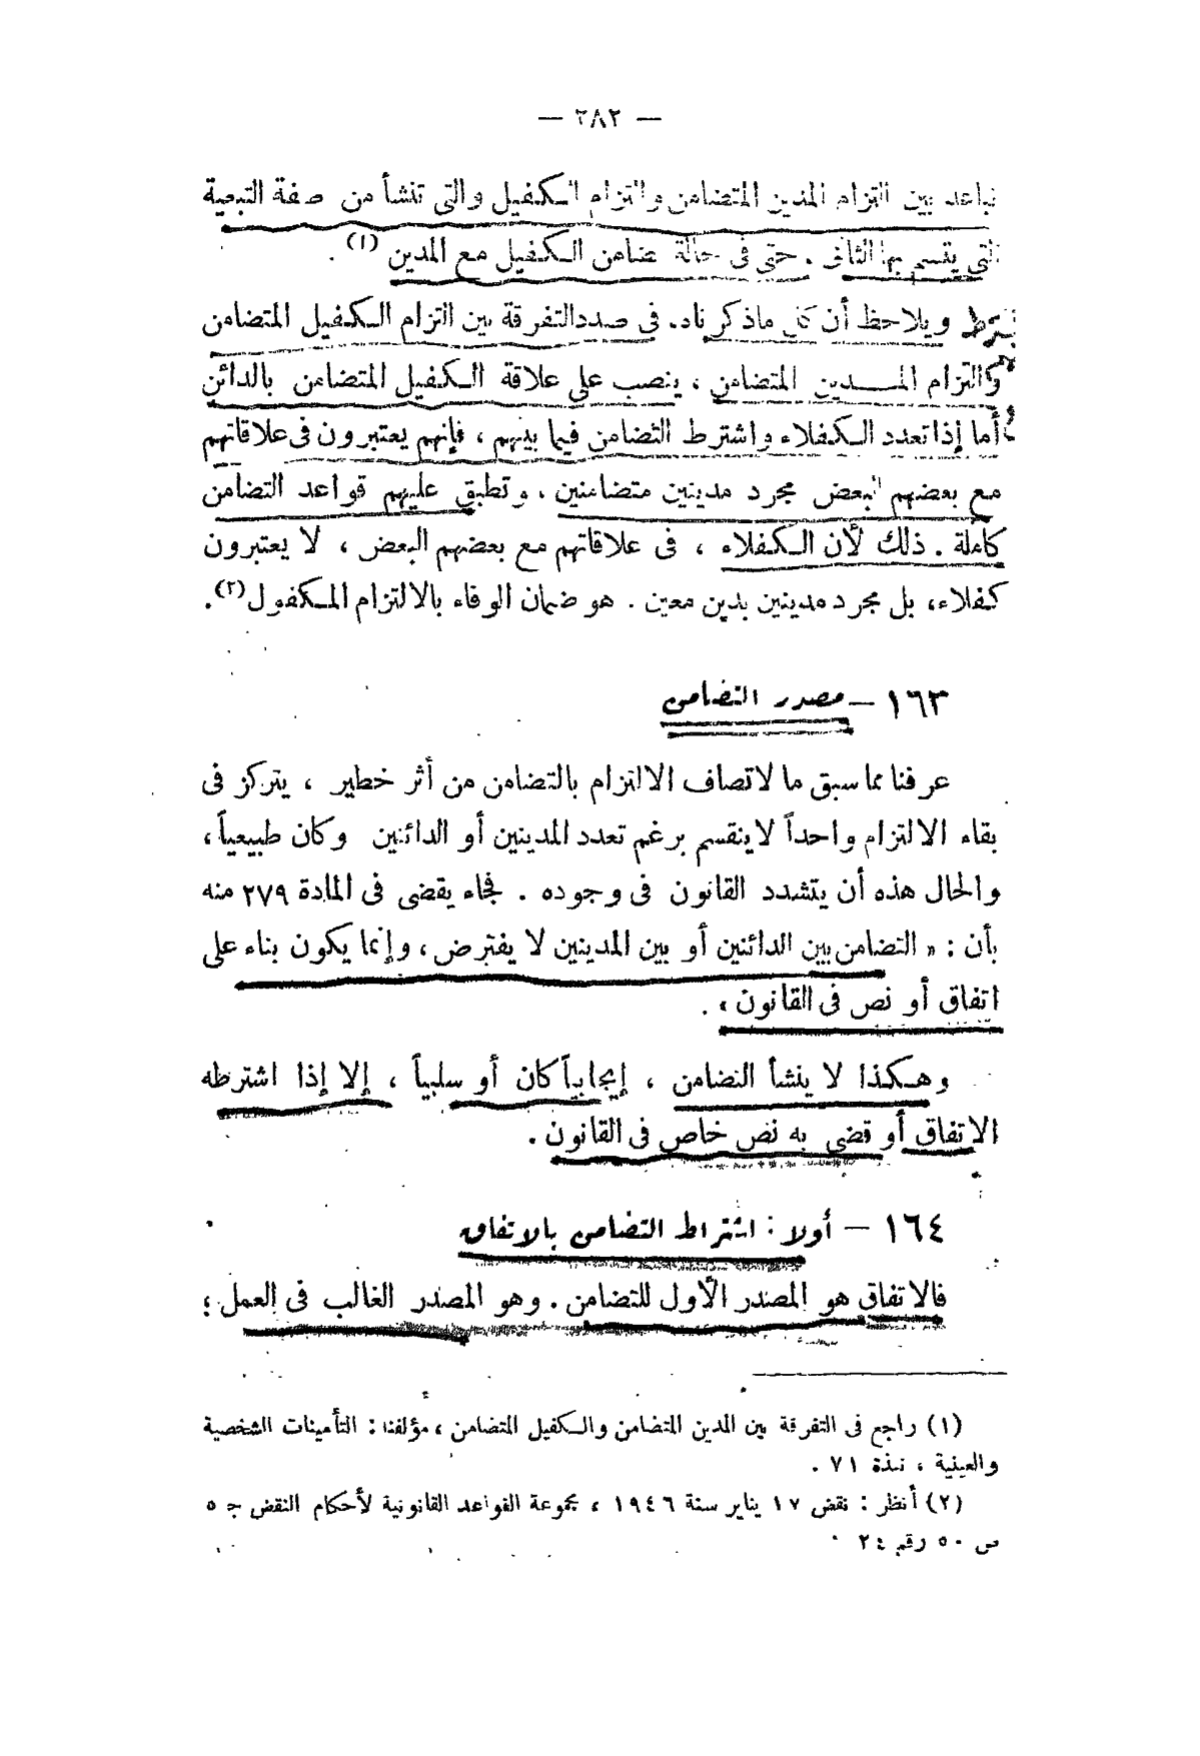 — ٢٨٢ —
تباعد بين التزام المدين المتضامن والتزام الكفيل والتى تنشأ من صفة التبعية
التى يتسم بها الثانى . حتى فى حالة تضامن الكفيل مع المدين (١) .
ويلاحظ أن كل ماذكرناه. فى صدد التفرقة بين التزام الكفيل المتضامن
والتزام المدين المتضامن ، ينصب على علاقة الكفيل المتضامن بالدائن
أما إذا تعدد الكفلاء واشترط التضامن فيما بينهم ، فإنهم يعتبرون فى علاقاتهم
مع بعضهم البعض مجرد مدينين متضامنين ، وتطبق عليهم قواعد التضامن
كاملة . ذلك لأن الكفلاء ، فى علاقاتهم مع بعضهم البعض ، لا يعتبرون
كفلاء، بل مجرد مدينين بدين معين . هو ضمان الوفاء بالالتزام المكفول (٢) .
١٦٣ — مصدر التضامن
عرفنا مما سبق ما لاتصاف الالتزام بالتضامن من أثر خطير ، يتركز فى
بقاء الالتزام واحداً لاينقسم برغم تعدد المدينين أو الدائنين وكان طبيعياً ،
والحال هذه أن يتشدد القانون فى وجوده . فجاء يقضى فى المادة ٢٧٩ منه
بأن : « التضامن بين الدائنين أو بين المدينين لا يفترض ، وإنما يكون بناء على
اتفاق أو نص فى القانون » .
وهكذا لا ينشأ التضامن ، إيجابياً كان أو سلبياً ، إلا إذا اشترطه
الاتفاق أو قضى به نص خاص فى القانون .
١٦٤ — أولا : اشتراط التضامن بالاتفاق
فالاتفاق هو المصدر الأول للتضامن . وهو المصدر الغالب فى العمل ؛
(١) راجع فى التفرقة بين المدين المتضامن والكفيل المتضامن ، مؤلفنا : التأمينات الشخصية
والعينية ، نبذة ٧١ .
(٢) أنظر : نقض ١٧ يناير سنة ١٩٤٦ ، مجموعة القواعد القانونية لأحكام النقض ج ٥
ص ٥٠ رقم ٢٤ .